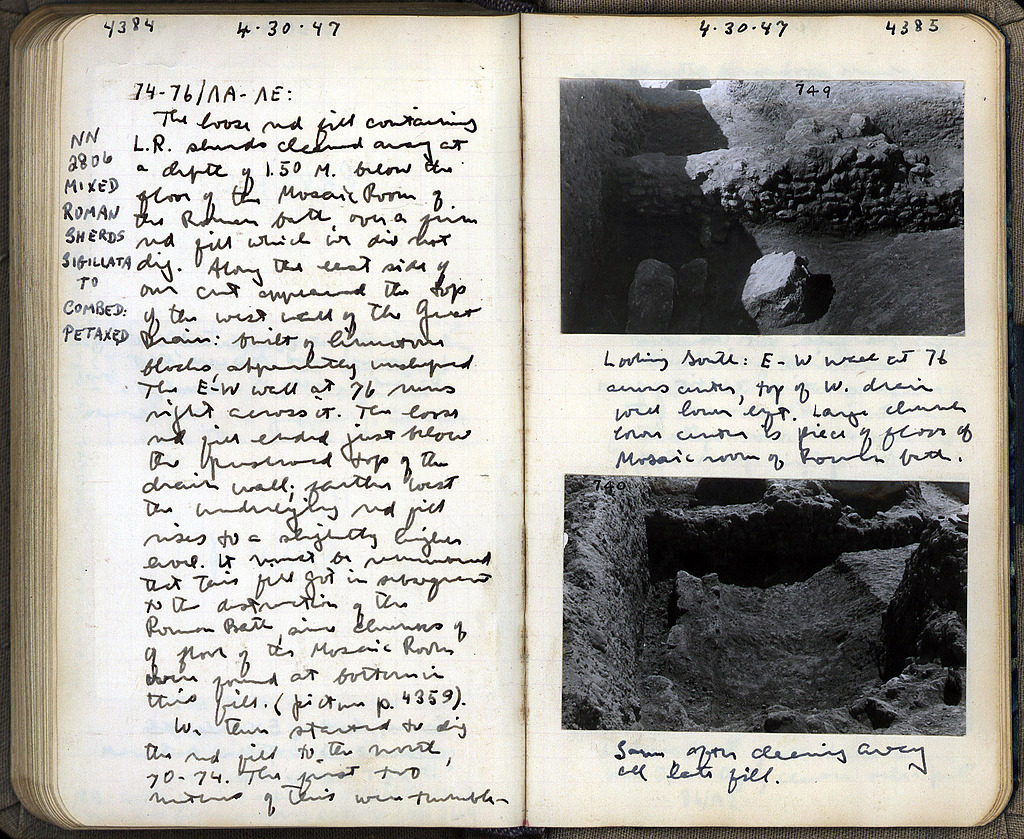 4384
4·30·47
74-76/ΛΑ-ΛΕ:
The loose red fill containing
L.R. sherds cleaned away at
a depth of 1.50 M. below the
floor of the Mosaic Room of
the Roman bath over a firm
red fill which we did not
dig. Along the east side of
our cut appeared the top
of the west wall of the Great
Drain: built of limestone
blocks, apparently undisturbed.
The E-W wall at 76 runs
right across it. The loose
red fill ended just below
the preserved top of the
drain wall; farther west
the underlying red fill
rises to a slightly higher
level. It must be remembered
that this fill got in subsequent
to the destruction of the
Roman Bath, since chunks of
of floor of the Mosaic Room
were found at bottom in
this fill. (picture p. 4359).
We then started to dig
the red fill to the north,
70-74. The first two
metres of this were tumble-
NN
2806
MIXED
ROMAN
SHERDS
SIGILLATA
TO
COMBED:
PETAXED
4·30·47
4385
749
Looking South: E-W wall at 76
across center, top of W. drain
wall lower left. Large chunk
lower center is piece of floor of
Mosaic room of Roman bath.
740
Same after cleaning away
all late fill.